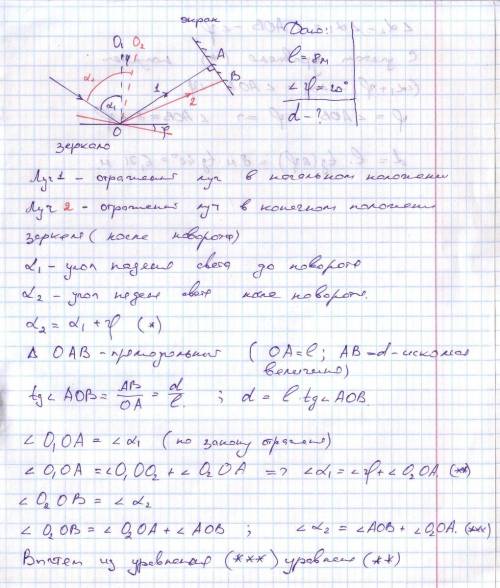 экран
Дано:
O₁ O₂
A
B
l = 8м
∠φ = 20°
d - ?
α₂
α₁
1
2
O
φ
зеркало
Луч 1 - отраженный луч в начальном положении
Луч 2 - отраженный луч в конечном положении
зеркала (после поворота)
α₁ - угол падения света до поворота
α₂ - угол падения света после поворота.
α₂ = α₁ + φ (*)
Δ OAB - прямоугольный ( OA = l ; AB = d - искомая
величина)
tg∠AOB = AB/OA = d/l. ; d = l tg∠AOB.
∠O₁OA = ∠α₁ ( по закону отражения)
∠O₁OA = ∠O₁OO₂ + ∠O₂OA => ∠α₁ = ∠φ + ∠O₂OA. (**)
∠O₂OB = ∠α₂
∠O₂OB = ∠O₂OA + ∠AOB ; ∠α₂ = ∠AOB + ∠O₂OA. (***)
Вычтем из уравнения (***) уравнение (**)